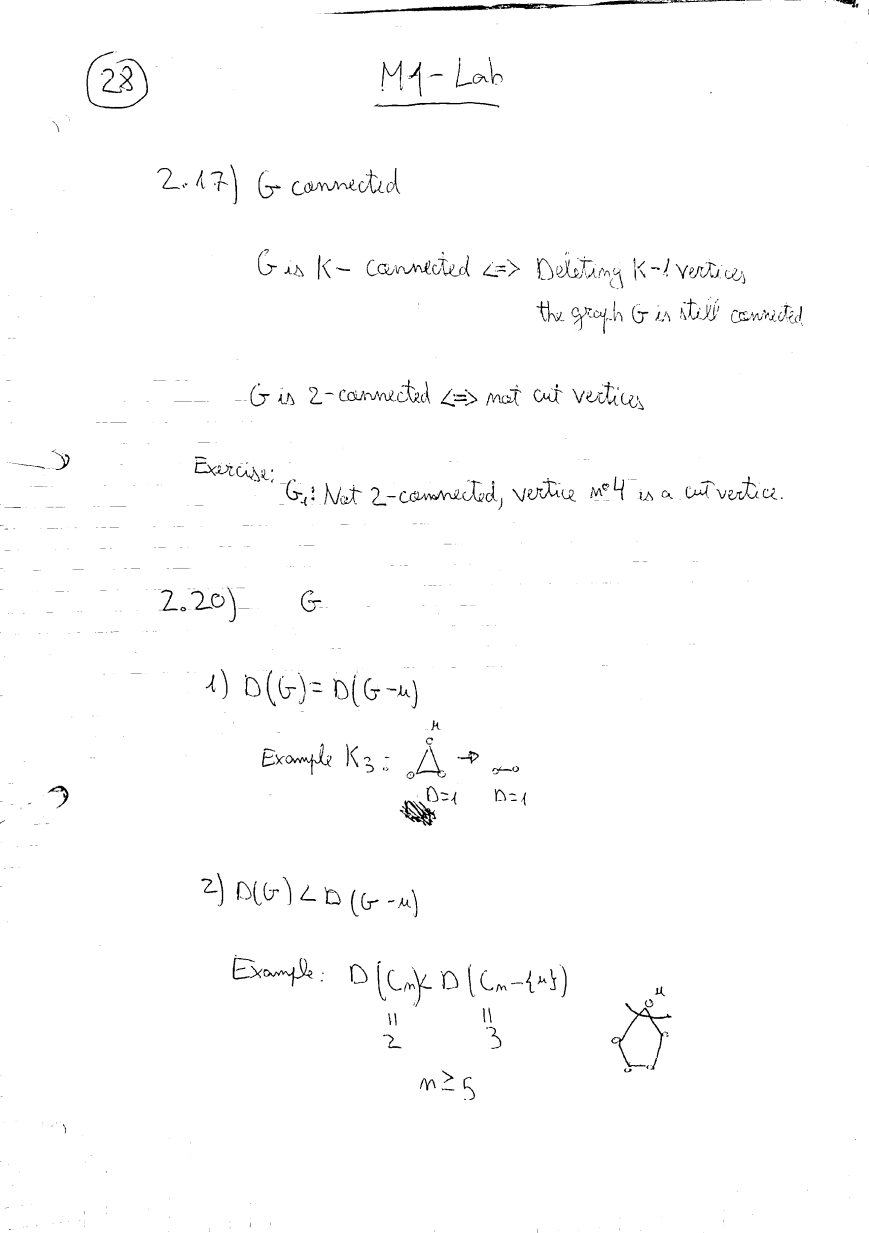 28
M1-Lab
2.17) G connected
G is K- connected <=> Deleting K-1 vertices
the graph G is still connected
G is 2-connected <=> not cut vertices
Exercise:
G₁: Not 2-connected, vertice nº4 is a cut vertice.
2.20) G
1) D(G)=D(G-u)
u
Example K3:
D=1 D=1
2) D(G)<D(G-u)
Example: D(Cn)<D(Cn-{u})
u
|| ||
2 3
n≥5